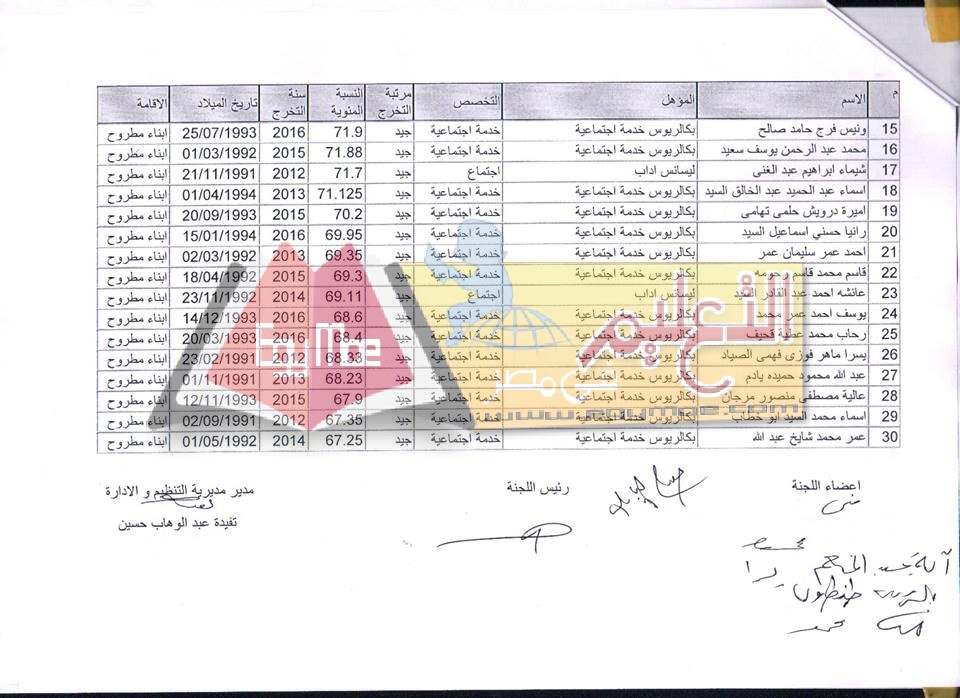 م الاسم المؤهل التخصص مرتبة التخرج النسبة المئوية سنة التخرج تاريخ الميلاد الاقامة
15 ونيس فرج حامد صالح بكالريوس خدمة اجتماعية خدمة اجتماعية جيد 71.9 2016 25/07/1993 ابناء مطروح
16 محمد عبد الرحمن يوسف سعيد بكالريوس خدمة اجتماعية خدمة اجتماعية جيد 71.88 2015 01/03/1992 ابناء مطروح
17 شيماء ابراهيم عبد الغنى ليسانس اداب اجتماع جيد 71.7 2012 21/11/1991 ابناء مطروح
18 اسماء عبد الحميد عبد الخالق السيد بكالريوس خدمة اجتماعية خدمة اجتماعية جيد 71.125 2013 01/04/1994 ابناء مطروح
19 اميرة درويش حلمى تهامى بكالريوس خدمة اجتماعية خدمة اجتماعية جيد 70.2 2015 20/09/1993 ابناء مطروح
20 رانيا حسني اسماعيل السيد بكالريوس خدمة اجتماعية خدمة اجتماعية جيد 69.95 2016 15/01/1994 ابناء مطروح
21 احمد عمر سليمان عمر بكالريوس خدمة اجتماعية خدمة اجتماعية جيد 69.35 2013 02/03/1992 ابناء مطروح
22 قاسم محمد قاسم رحومه بكالريوس خدمة اجتماعية خدمة اجتماعية جيد 69.3 2015 18/04/1992 ابناء مطروح
23 عائشه احمد عبد القادر السيد ليسانس اداب اجتماع جيد 69.11 2014 23/11/1992 ابناء مطروح
24 يوسف احمد عمر محمد بكالريوس خدمة اجتماعية خدمة اجتماعية جيد 68.6 2016 14/12/1993 ابناء مطروح
25 رحاب محمد عطية قحيف بكالريوس خدمة اجتماعية خدمة اجتماعية جيد 68.4 2016 20/03/1993 ابناء مطروح
26 يسرا ماهر فوزى فهمى الصياد بكالريوس خدمة اجتماعية خدمة اجتماعية جيد 68.33 2012 23/02/1991 ابناء مطروح
27 عبد الله محمود حميده يادم بكالريوس خدمة اجتماعية خدمة اجتماعية جيد 68.23 2013 01/11/1991 ابناء مطروح
28 عالية مصطفى منصور مرجان بكالريوس خدمة اجتماعية خدمة اجتماعية جيد 67.9 2015 12/11/1993 ابناء مطروح
29 اسماء محمد السيد ابو خطاب بكالريوس خدمة اجتماعية خدمة اجتماعية جيد 67.35 2012 02/09/1991 ابناء مطروح
30 عمر محمد شايخ عبد الله بكالريوس خدمة اجتماعية خدمة اجتماعية جيد 67.25 2014 01/05/1992 ابناء مطروح
التعليم
فى مصر
اعضاء اللجنة رئيس اللجنة مدير مديرية التنظيم و الادارة
تفيدة عبد الوهاب حسين